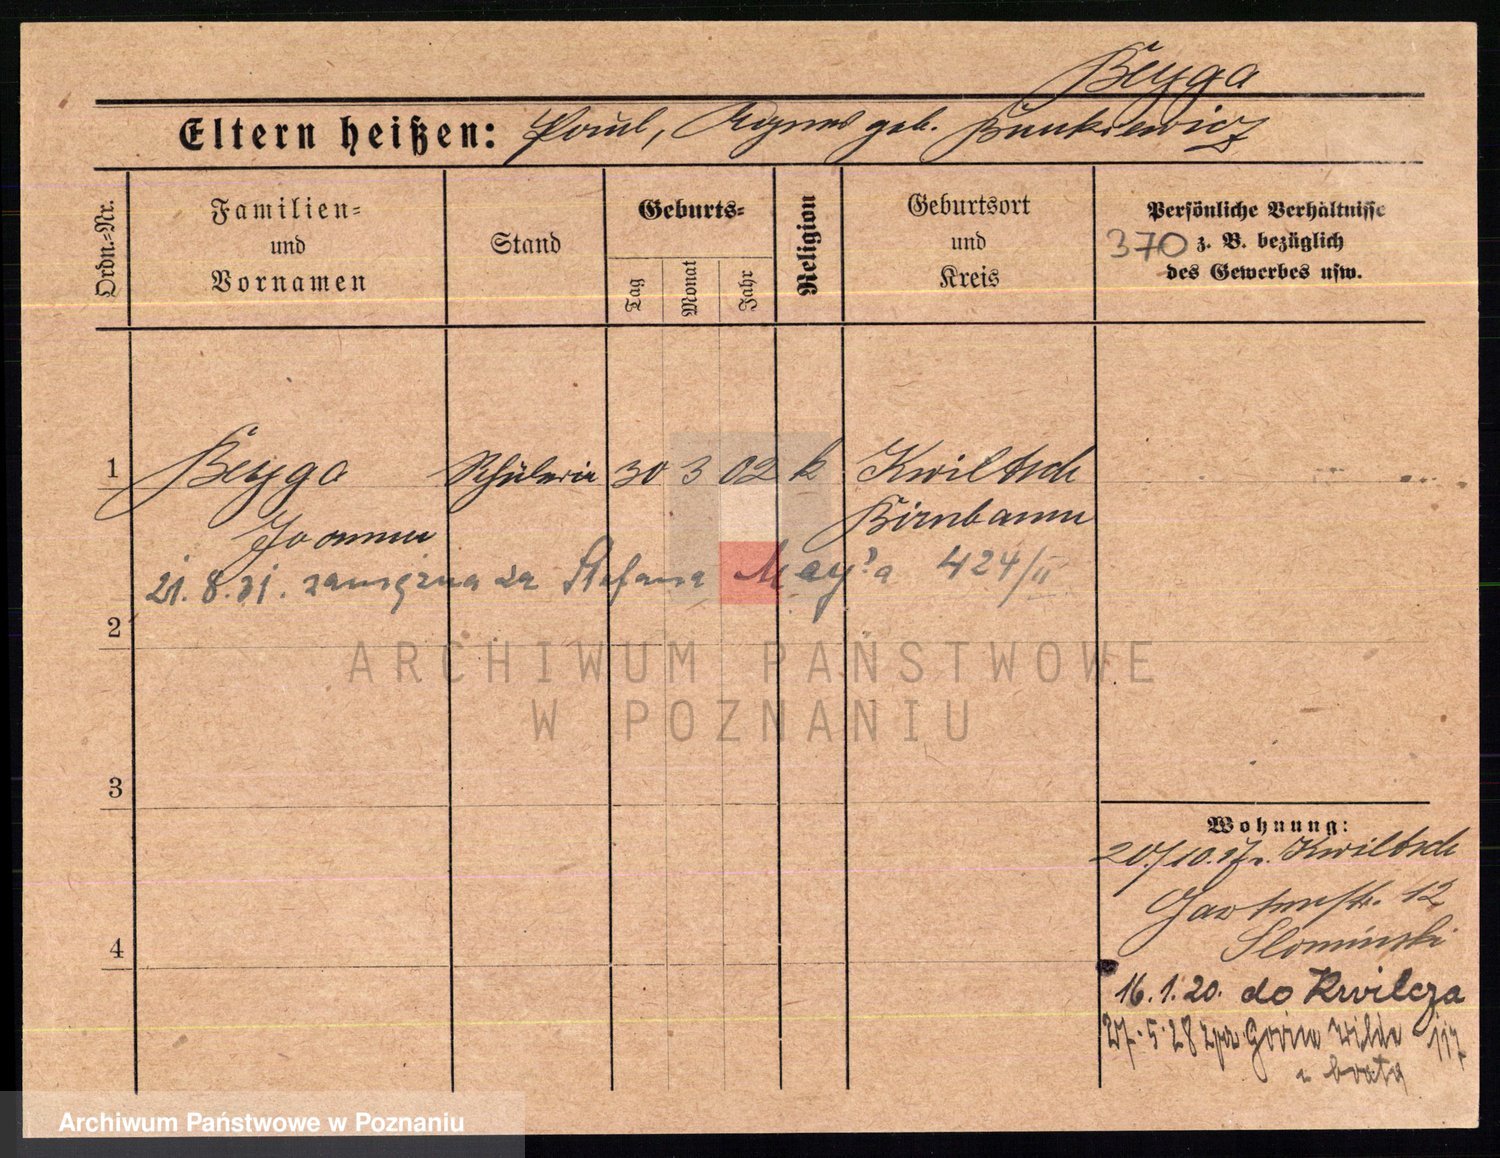 Beyga
Eltern heißen: Paul, Agnes geb. Bunkiewicz
Ordn.-Nr.
Familien-
und
Vornamen
Stand
Geburts-
Tag
Monat
Jahr
Religion
Geburtsort
und
Kreis
Persönliche Verhältnisse
370 z. B. bezüglich
des Gewerbes usw.
1 Beyga Schülerin 30 3 02 k Kwiltsch
Joanna Birnbaum
21. 8. 31. zamężna za Stefana May?a 424/II
2
ARCHIWUM PAŃSTWOWE
W POZNANIU
3
4
Wohnung:
20/10.17 v. Kwiltsch
Gartenstr. 12
Slominski
16.1.20. do Kwilcza
27.5.28 Wilda 117
u brata
Archiwum Państwowe w Poznaniu